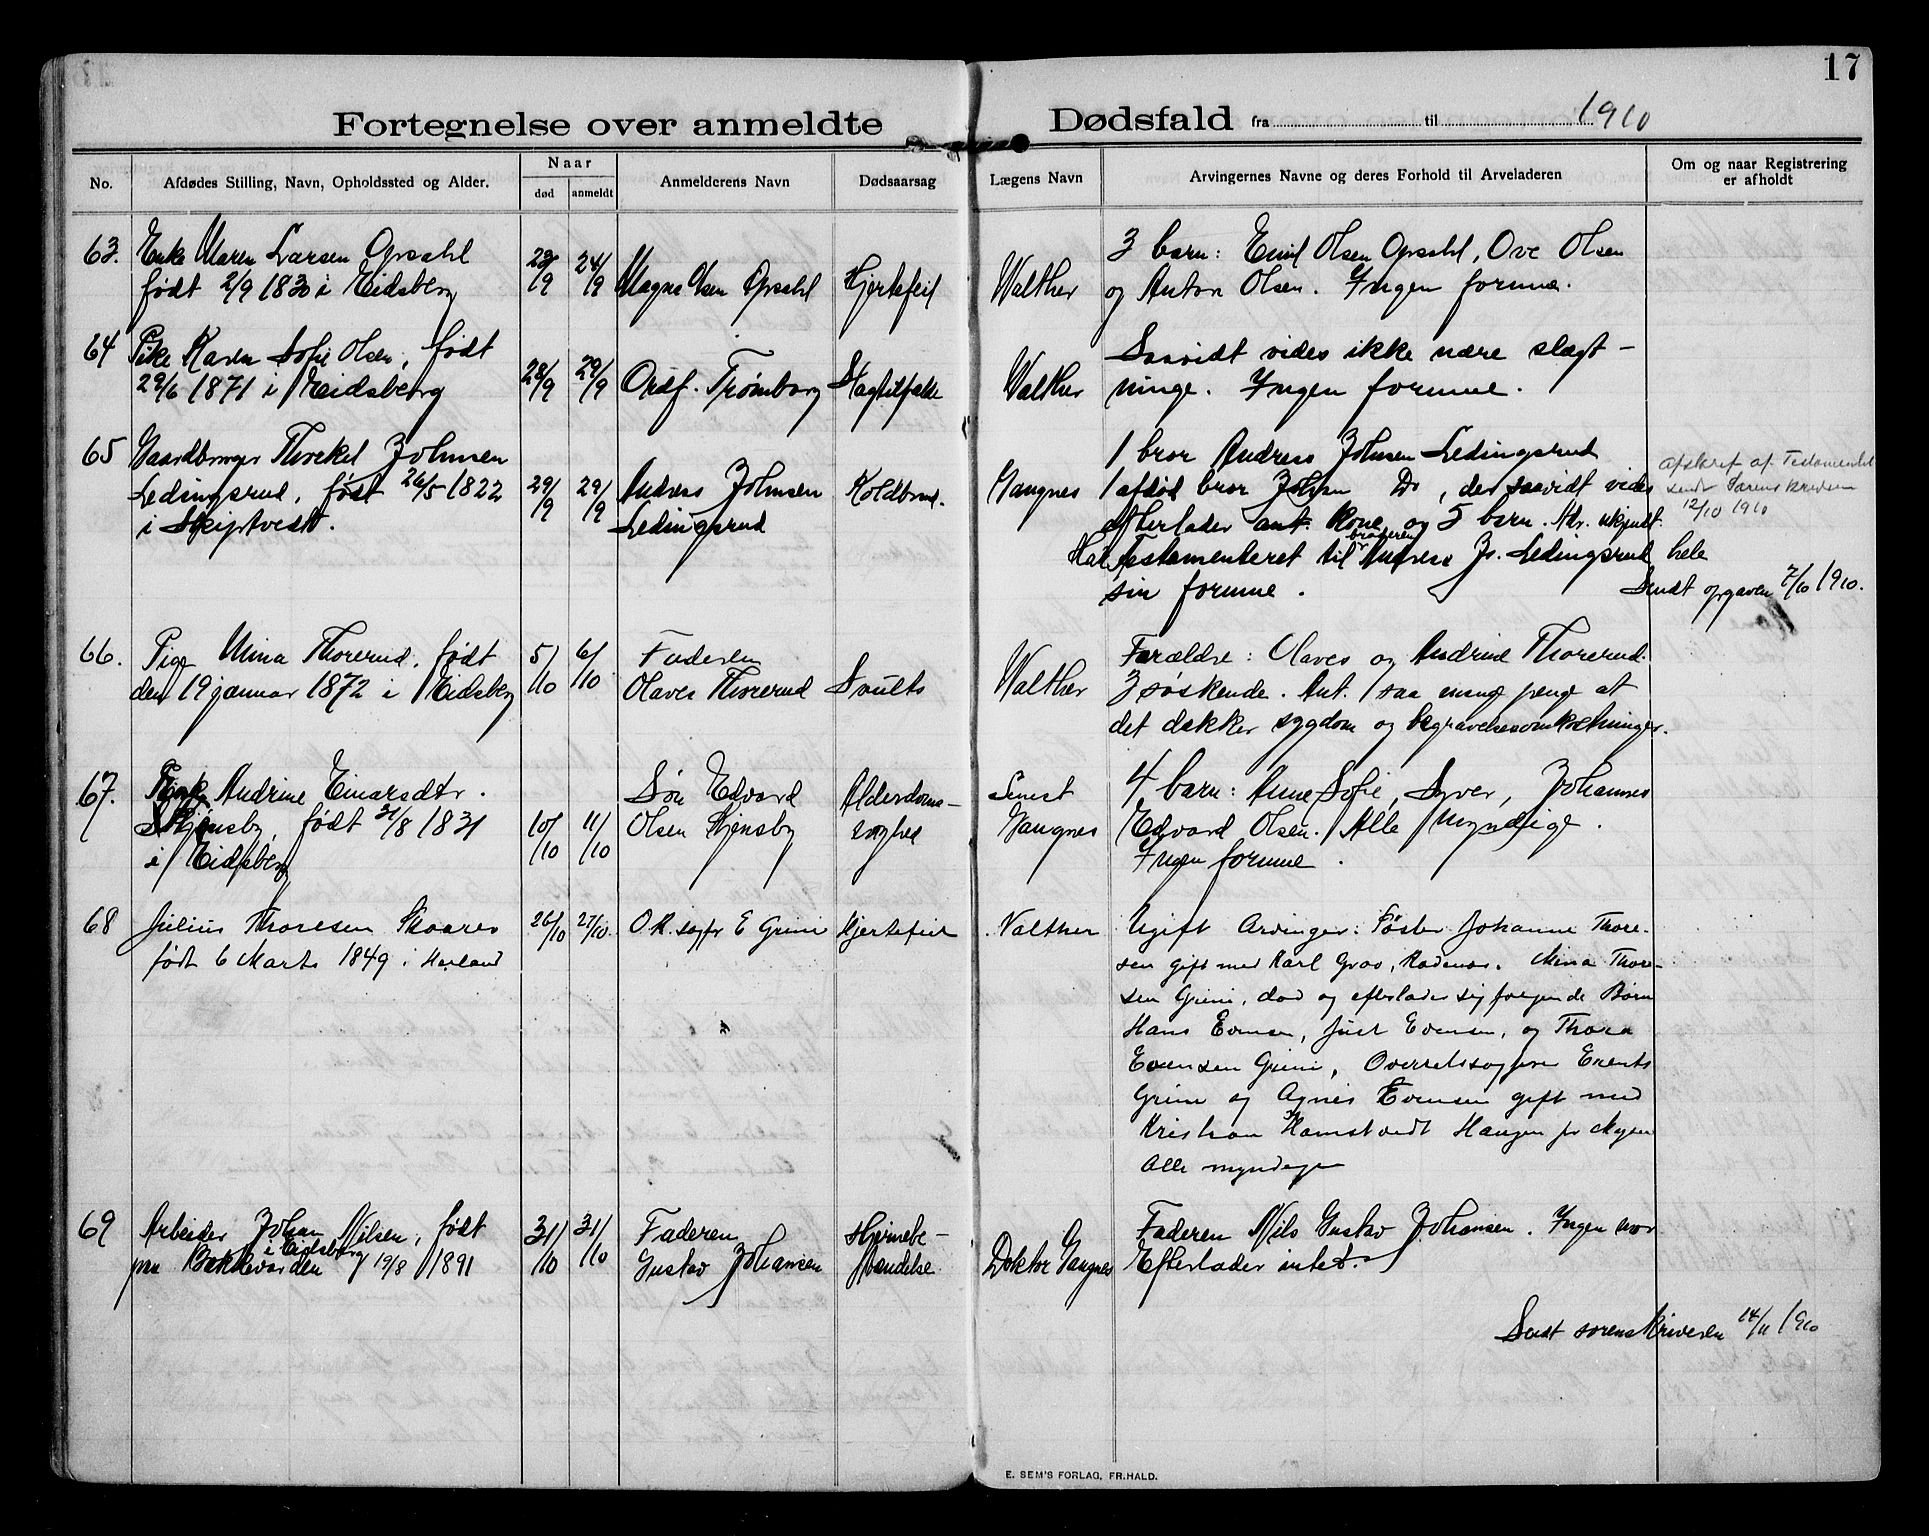 17
Fortegnelse over anmeldte Dødsfald fra til 1910
No. Afdødes Stilling, Navn, Opholdssted og Alder. Naar død anmeldt Anmelderens Navn Dødsaarsag Lægens Navn Arvingernes Navne og deres Forhold til Arveladeren Om og naar Registrering er afholdt
63. Enke Maren Larsen Opsahl
født 2/9 1830 i Eidsberg
23/9 24/9
Magns Olsen Opsahl
Hjertefeil
Walther
3 barn: Emil Olsen Opsahl, Ove Olsen
og Anton Olsen. Ingen formue.
64 Pike Karen Sofie Olsen, født
29/6 1871 i Eidsberg
28/9 29/9
Ordf. Trømborg
Slagtilfælde
Walther
Saavidt vides ikke nære slægt-
ninge. Ingen formue.
65 Gaardbruger Thorkel Johnsen
Ledingsrud, født 26/5 1822
i Skiptvedt.
29/9 29/9
Andreas Johnsen
Ledingsrud
Koldbrand.
Gangnes
1 bror Andreas Johnsen Ledingsrud
1 afdød bror Johan Do, der saavidt vides
efterlader ant. kone og 5 barn. Adr. ukjendt.
Har testamenteret til broderen Andreas Js. Ledingsrud hele
sin formue.
afskrift af Testamentet
sendt Sorenskriveren
12/10 1910
Sendt opgaven 7/10 1910.
66. Pige Mina Thorerud, født
den 19 januar 1872 i Eidsberg
5/10 6/10
Faderen
Olaves Thorerud
Svulst
Walther
Forældre: Olaves og Andrine Thorerud.
3 søskende. Ant. saa mange penge at
det dækker sygdom og begravelsesomkostninger.
67. Enke Andrine Einarsdtr.
Skjensby, født 31/8 1831
i Eidsberg
10/10 11/10
Søn Edvard
Olsen Skjensby
Alderdoms-
svaghed
Senest
Gangnes
4 barn: Anne Sofie, Syver, Johannes
Edvard Olsen. Alle myndige.
Ingen formue.
68 Julius Thoresen Skaares
født 6 Marts 1849 i Herland
26/10 27/10.
O.R. sagfr E Grini
Hjertefeil
Walther
Ugift Arvinger: Søster Johanne Thore-
sen gift med Karl Grav, Rødenes. Mina Thore-
sen Grini, død og efterlader sig følgende Børn
Hans Evensen, Just Evensen, og Thora
Evensen Grini, Overretssagfører Erents
Grini og Agnes Evensen gift med
Kristian Hamstvedt Haugen pr Mysen
Alle myndige
69 Arbeider Johan Nilsen, født
i Eidsberg
paa Bakkevarden 19/8 1891
31/10 31/10
Faderen
Gustav Johansen
Hjernebe-
tændelse
Doktor Gangnes
Faderen Nils Gustav Johansen. Ingen mor
Efterlader intet.
Sendt sorenskriveren 14/11 1910
E. SEM'S FORLAG, FR.HALD.